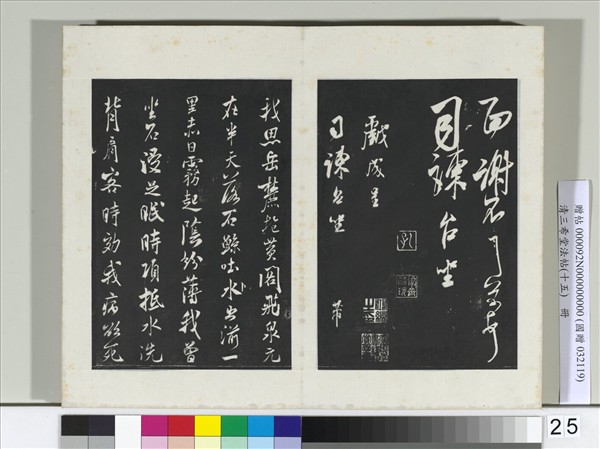 面謝不
司諫台坐
戲成呈
司諫台坐
芾
我思岳麓抱黃閣飛泉元
在半天落石鯨吐水出湔一
里赤日霧起陰紛薄我曾
坐石浸足眠時項抵水洗
背肩客時效我病欲死
贈帖 000092N000000000 (國贈 032119)
清三希堂法帖(十五) 冊
25